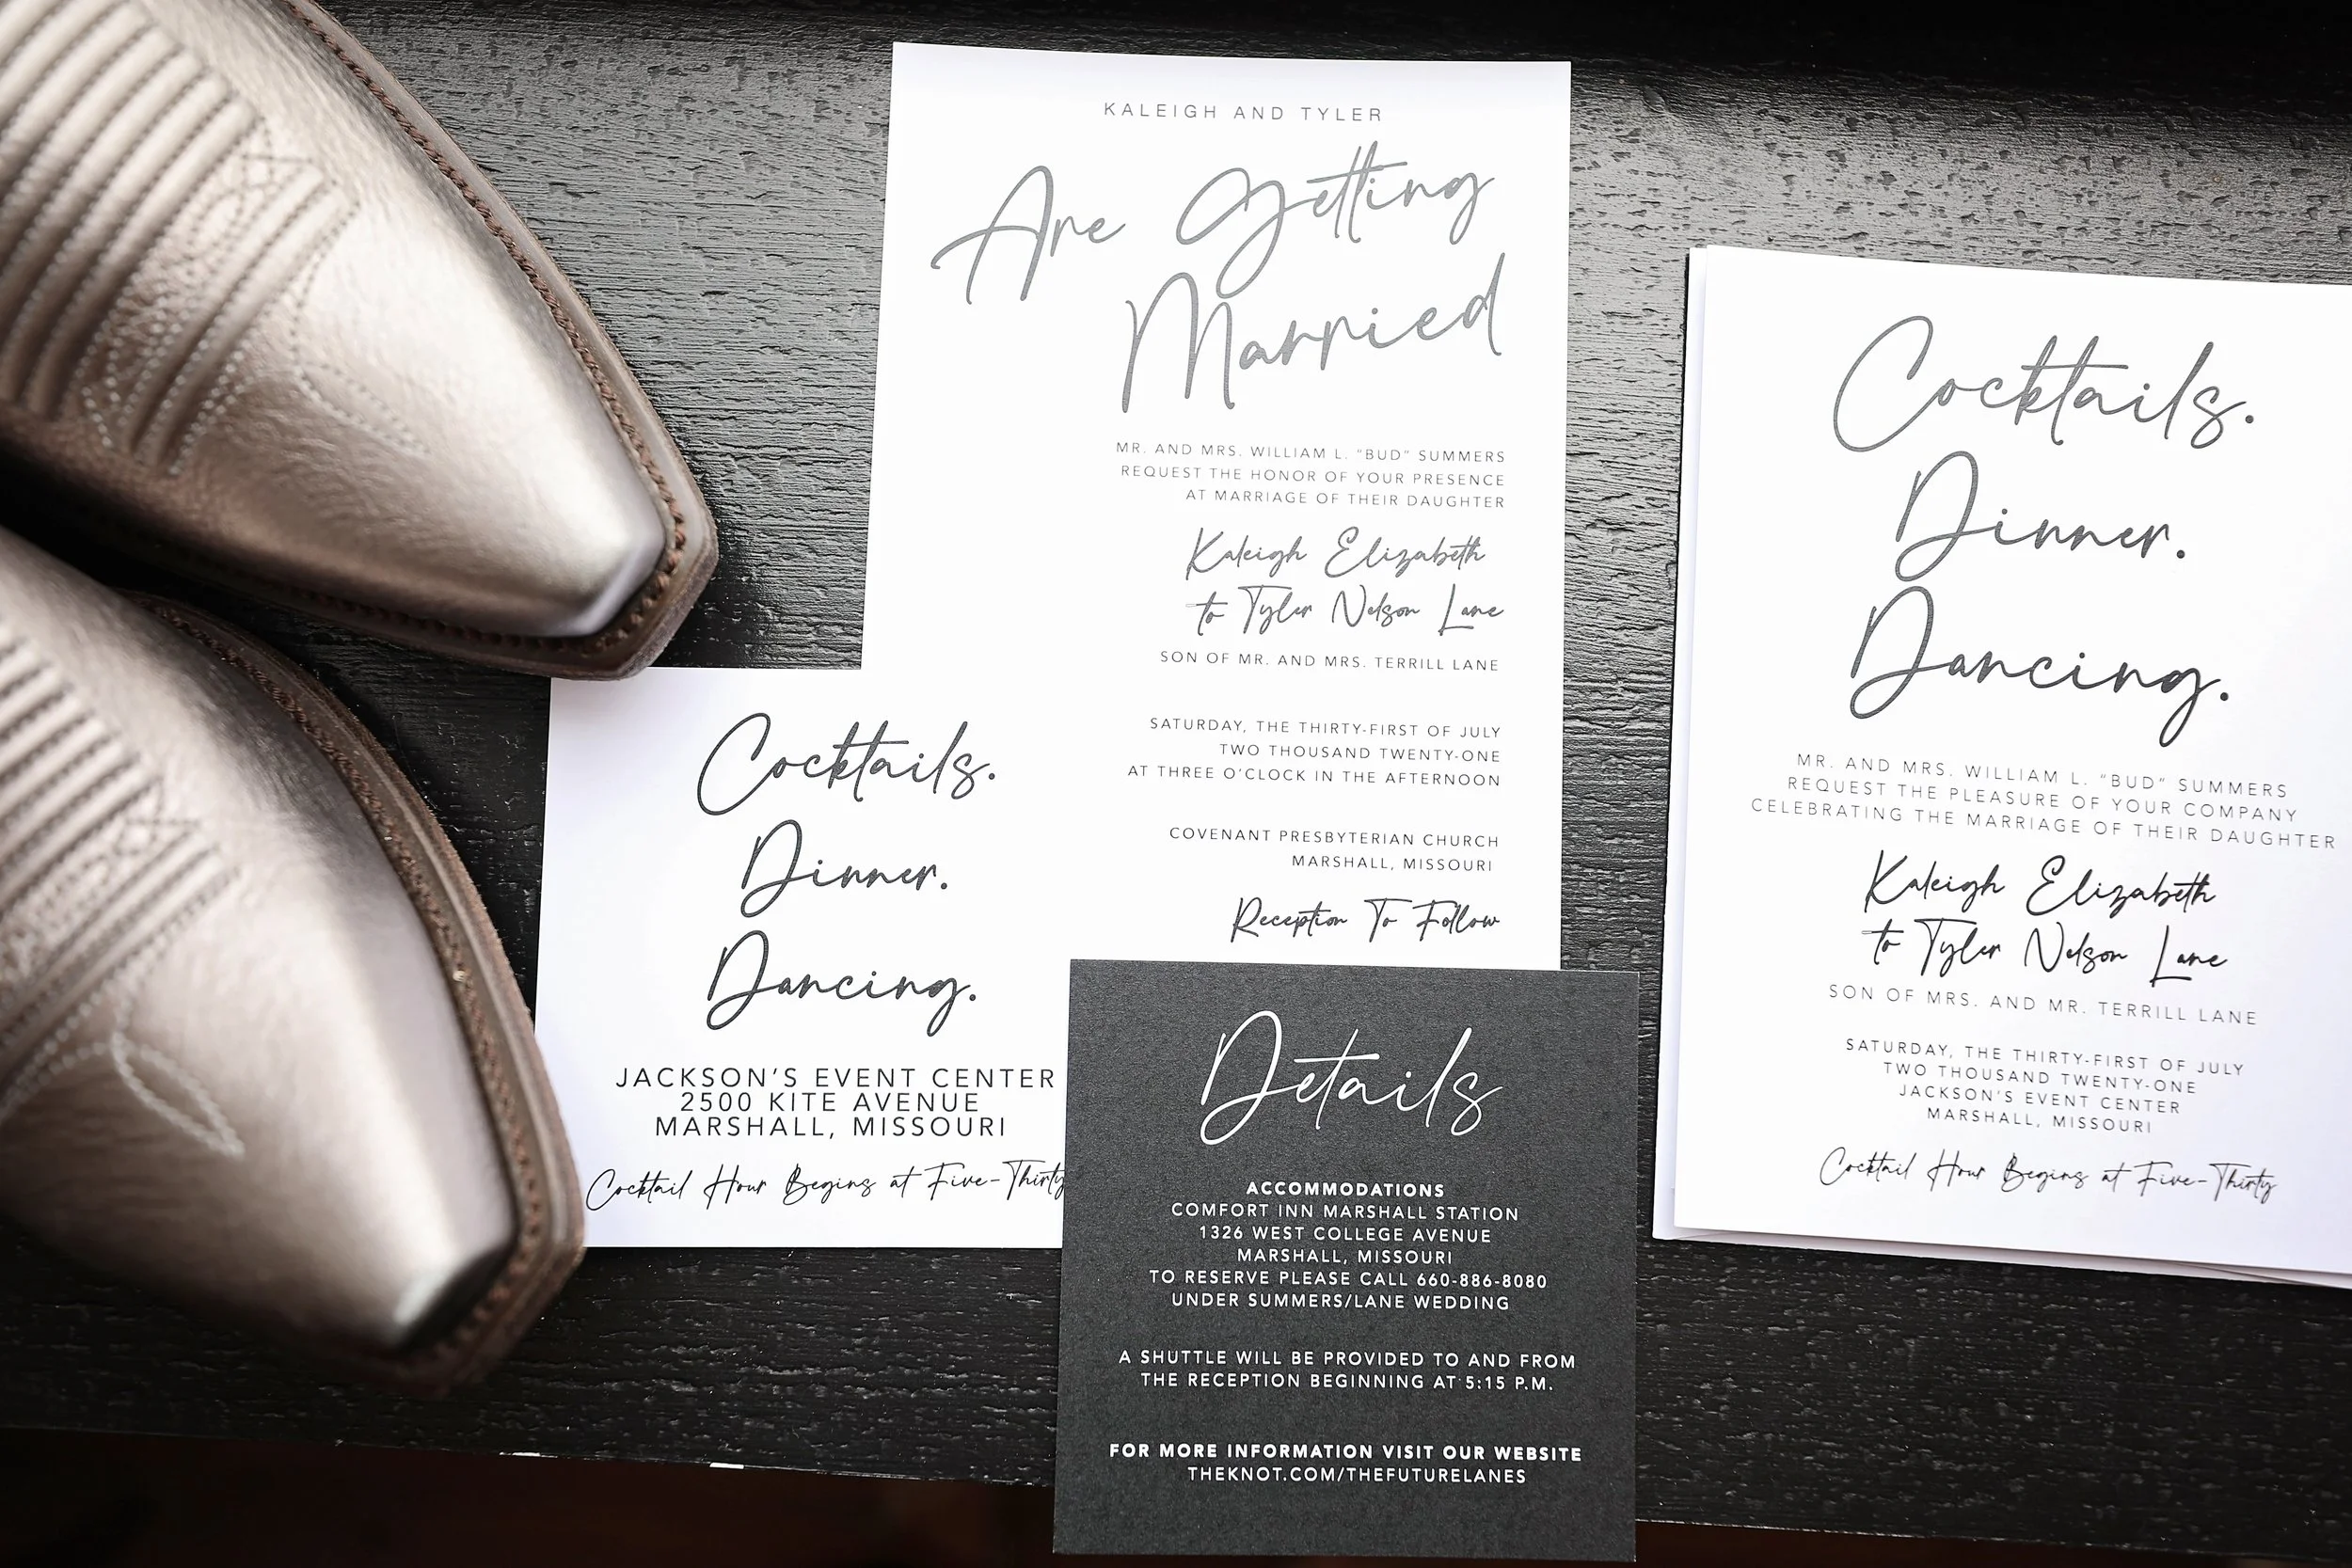 KALEIGH AND TYLER
Are Getting
Married
MR. AND MRS. WILLIAM L. "BUD" SUMMERS
REQUEST THE HONOR OF YOUR PRESENCE
AT MARRIAGE OF THEIR DAUGHTER
Kaleigh Elizabeth
to Tyler Nelson Lane
SON OF MR. AND MRS. TERRILL LANE
SATURDAY, THE THIRTY-FIRST OF JULY
TWO THOUSAND TWENTY-ONE
AT THREE O'CLOCK IN THE AFTERNOON
COVENANT PRESBYTERIAN CHURCH
MARSHALL, MISSOURI
Reception To Follow
Cocktails.
Dinner.
Dancing.
JACKSON'S EVENT CENTER
2500 KITE AVENUE
MARSHALL, MISSOURI
Cocktail Hour Begins at Five-Thirty
Details
ACCOMMODATIONS
COMFORT INN MARSHALL STATION
1326 WEST COLLEGE AVENUE
MARSHALL, MISSOURI
TO RESERVE PLEASE CALL 660-886-8080
UNDER SUMMERS/LANE WEDDING
A SHUTTLE WILL BE PROVIDED TO AND FROM
THE RECEPTION BEGINNING AT 5:15 P.M.
FOR MORE INFORMATION VISIT OUR WEBSITE
THEKNOT.COM/THEFUTURELANES
Cocktails.
Dinner.
Dancing.
MR. AND MRS. WILLIAM L. "BUD" SUMMERS
REQUEST THE PLEASURE OF YOUR COMPANY
CELEBRATING THE MARRIAGE OF THEIR DAUGHTER
Kaleigh Elizabeth
to Tyler Nelson Lane
SON OF MRS. AND MR. TERRILL LANE
SATURDAY, THE THIRTY-FIRST OF JULY
TWO THOUSAND TWENTY-ONE
JACKSON'S EVENT CENTER
MARSHALL, MISSOURI
Cocktail Hour Begins at Five-Thirty